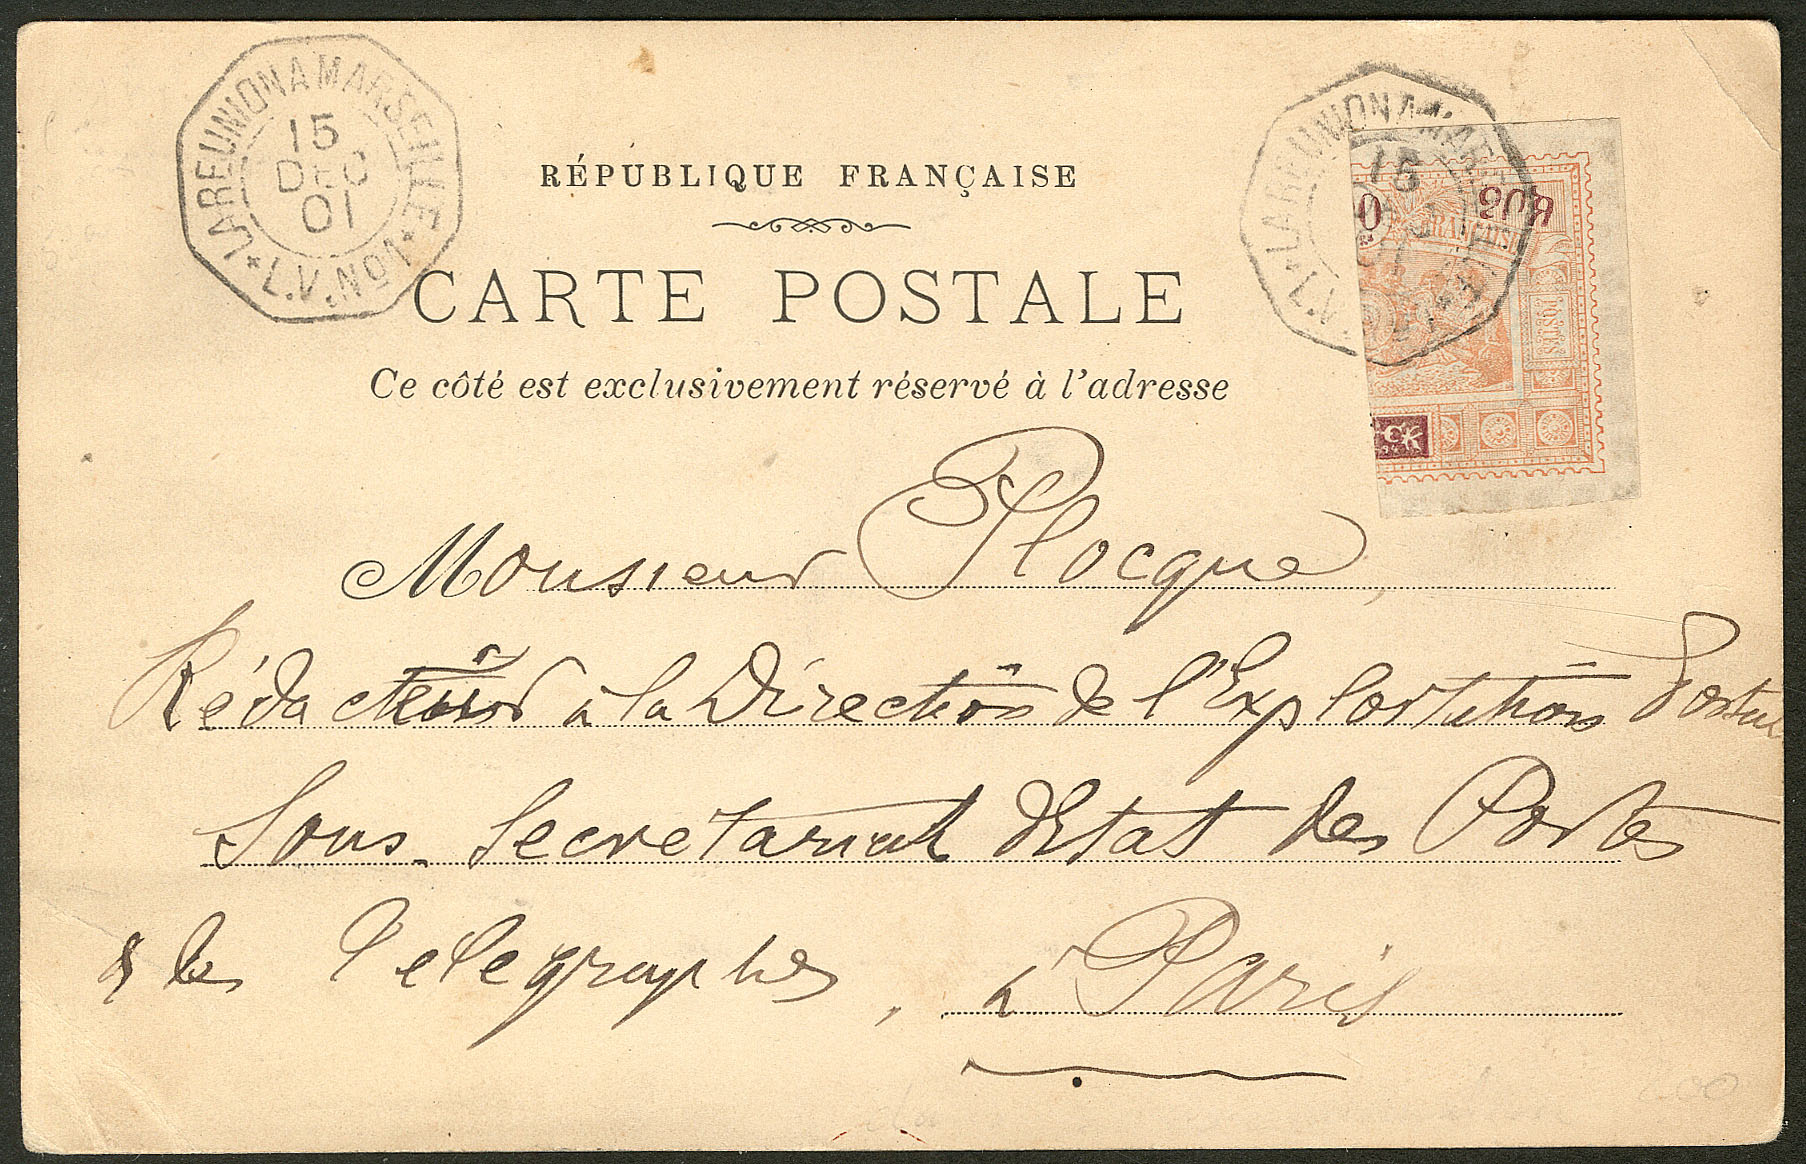 LA REUNION A MARSEILLE
15
DEC
01
* L.V. N° 1 *
LA REUNION A MAR
15
L.V. N
0
FRANÇAISE
POSTES
RÉPUBLIQUE FRANÇAISE
CARTE POSTALE
Ce côté est exclusivement réservé à l'adresse
Monsieur Plocque,
Rédacteur à la Direction de l'Exploitation Postale
Sous-Secretariat d'Etat des Postes
& des Telegraphes, à Paris